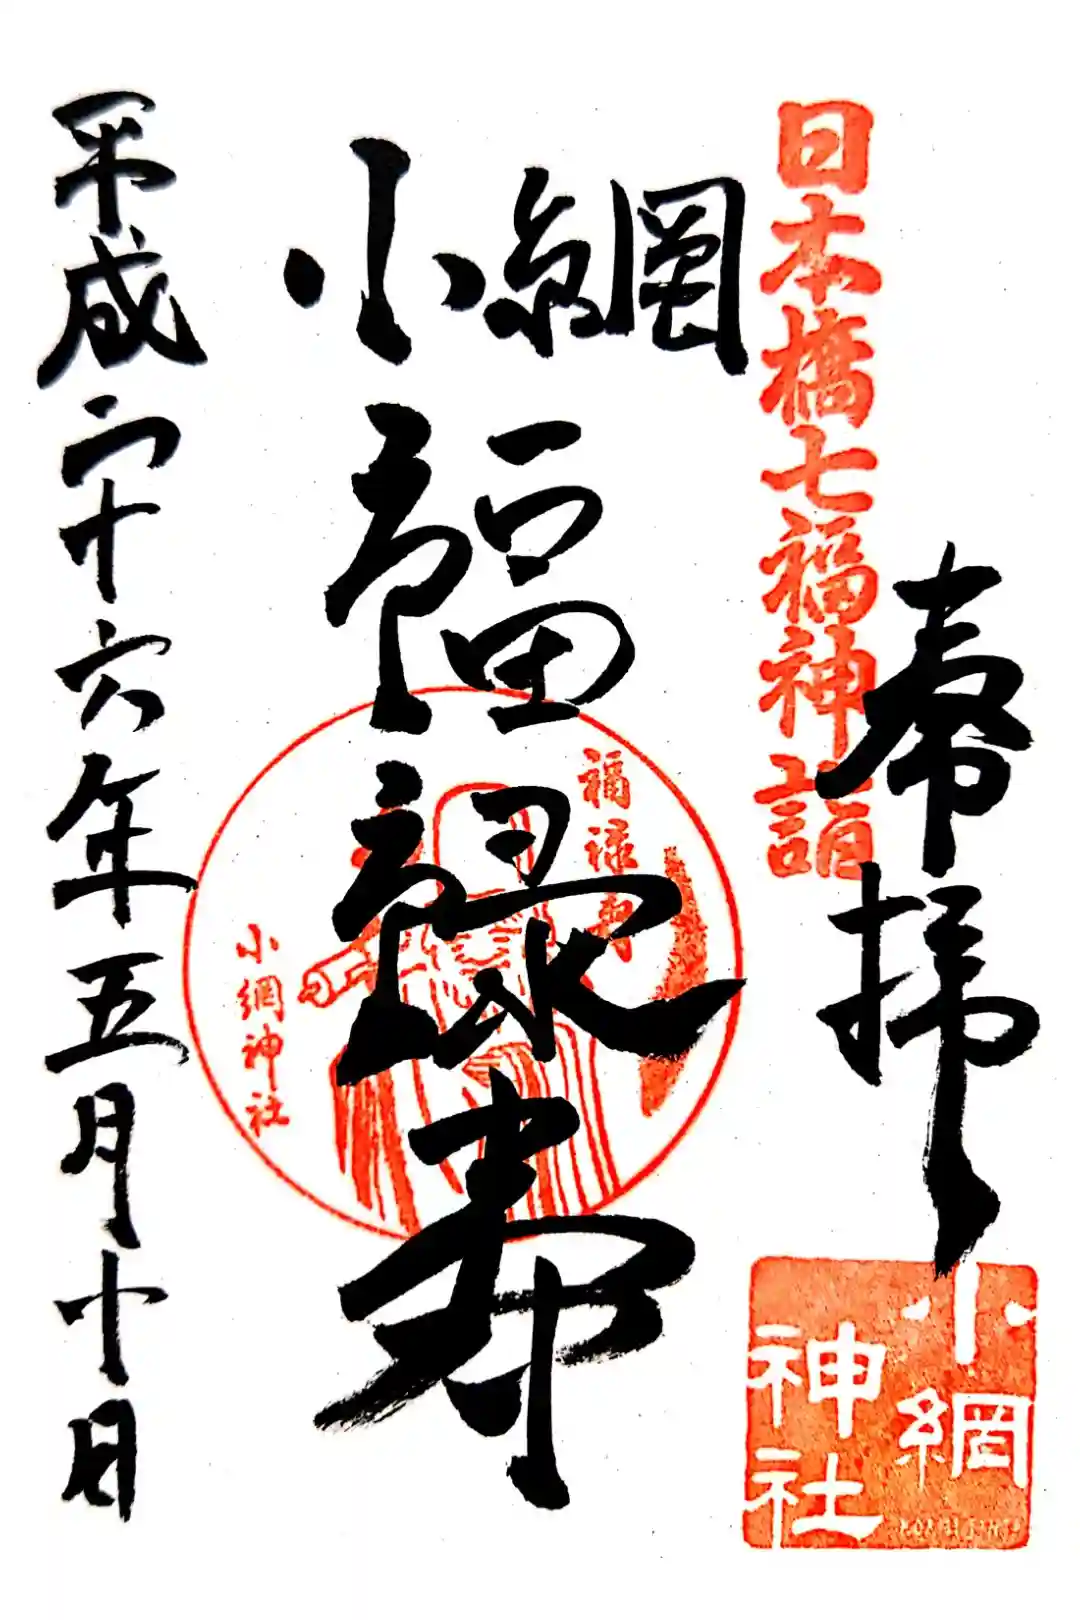 奉拝
日本橋七福神詣
小網
福禄寿
福禄寿
小網神社
小網
神社
平成二十六年五月十日